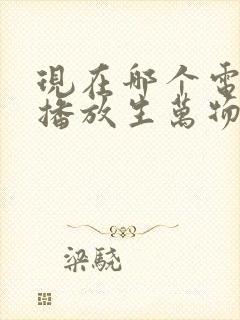 現在哪个電
播放生萬物
梁驍